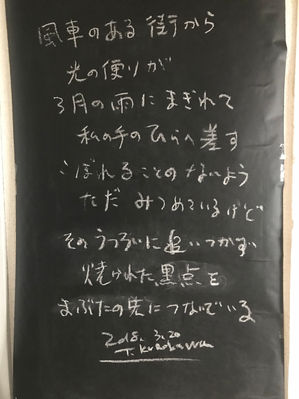 風車のある街から
光の便りが
3月の雨にまぎれて
私の手のひらへ差す
こぼれることのないよう
ただみつめているけど
そのうつろいに追いつかず
焼けれた黒点を
まぶたの先につないでいる
2018. 3. 20
T. Kurokawa